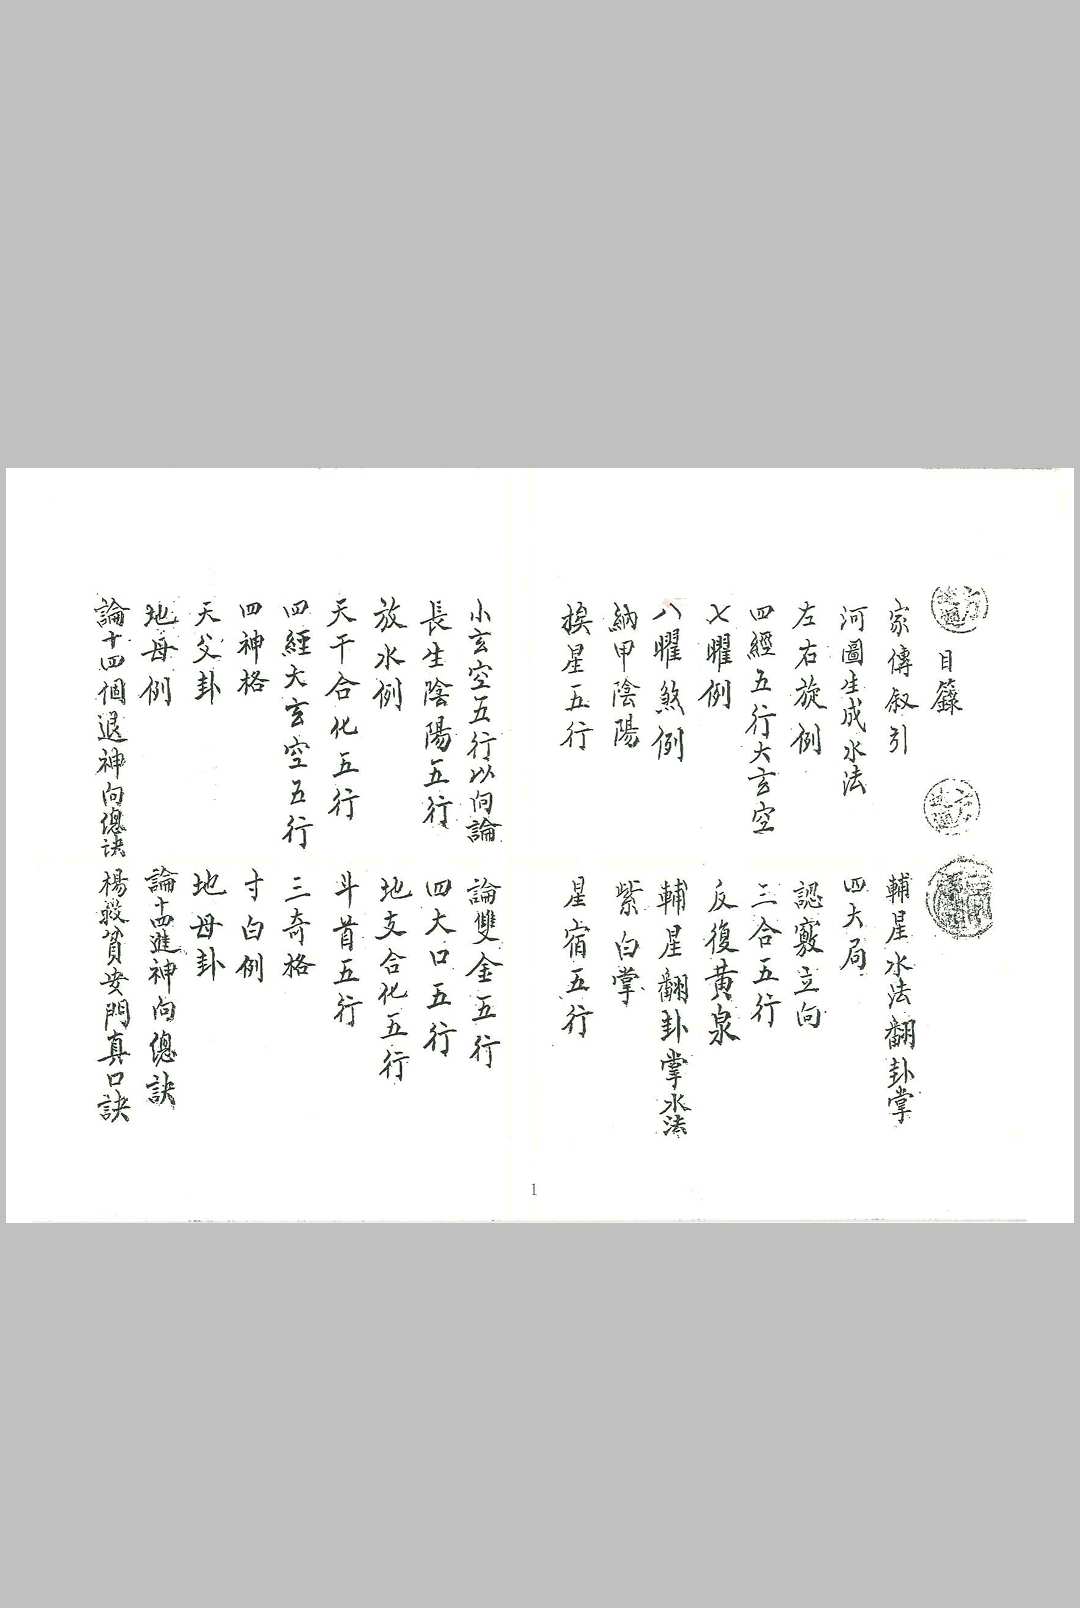 目籙
家傳叙引
輔星水法翻卦掌
河圖生成水法
四大局
左右旋例
認竅立向
四經五行大玄空
三合五行
七曜例
反復黄泉
八曜煞例
輔星翻卦掌水法
納甲陰陽
紫白掌
挨星五行
星宿五行
小玄空五行以向論
論雙金五行
長生陰陽五行
四大口五行
放水例
地支合化五行
天干合化五行
斗首五行
四經大玄空五行
三奇格
四神格
寸白例
天父卦
地母卦
地母例
論十四進神向總訣
論十四個退神向總訣
楊救貧安門真口訣
1